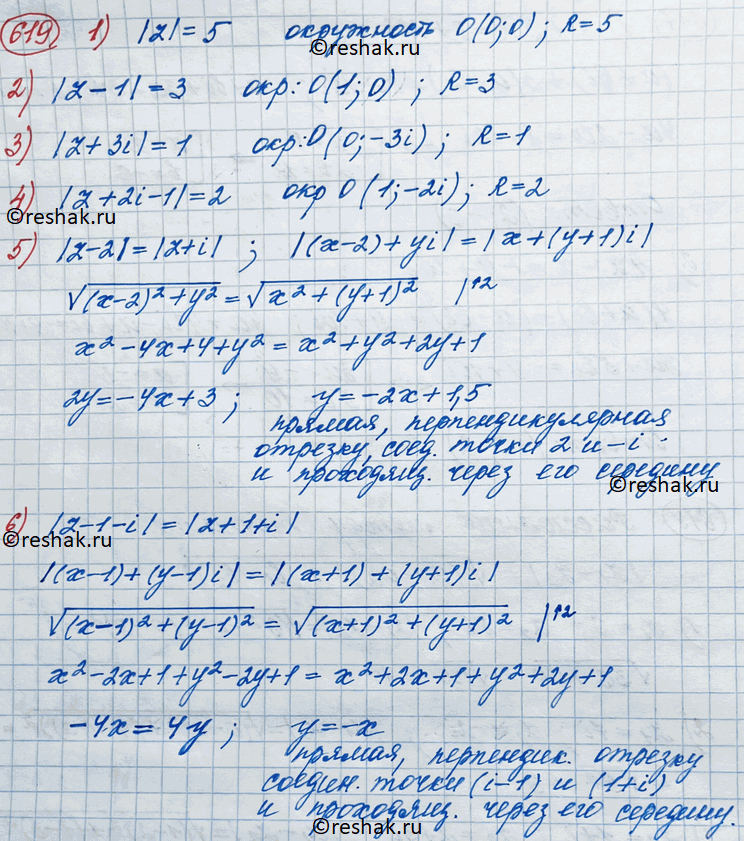 619 1) |z| = 5 окружность O(0;0); R=5
2) |z-1| = 3 окр: O(1;0); R=3
3) |z+3i| = 1 окр: O(0;-3i); R=1
4) |z+2i-1| = 2 окр O(1;-2i); R=2
©reshak.ru
5) |z-2| = |z+i| ; |(x-2)+yi| = |x+(y+1)i|
√((x-2)²+y²) = √(x²+(y+1)²) |↑2
x²-4x+4+y² = x²+y²+2y+1
2y=-4x+3 ; y=-2x+1,5
прямая, перпендикулярная
отрезку, соед. точки 2 и -i
и проходящ. через его середину
©reshak.ru
6) |z-1-i| = |z+1+i|
©reshak.ru
|(x-1)+(y-1)i| = |(x+1)+(y+1)i|
√((x-1)²+(y-1)²) = √((x+1)²+(y+1)²) |↑2
x²-2x+1+y²-2y+1 = x²+2x+1+y²+2y+1
-4x=4y ; y=-x
прямая, перпендик. отрезку
соедин. точки (i-1) и (1+i)
и проходящ. через его середину.
©reshak.ru